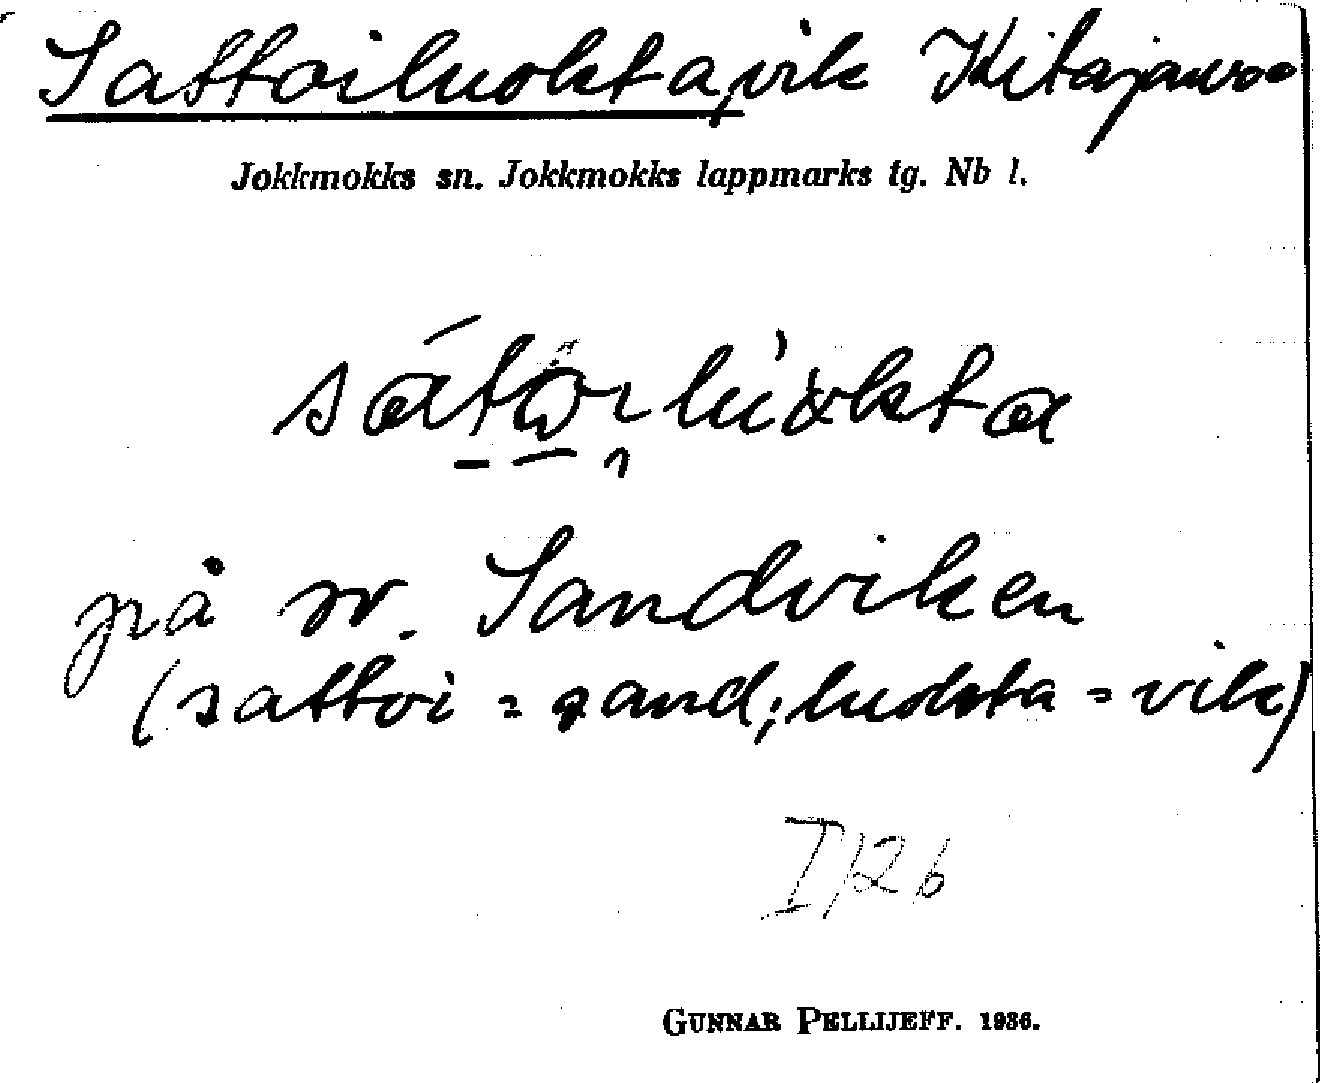 Sattoiluokta, vik Kitajaure
Jokkmokks sn. Jokkmokks lappmarks tg. Nb l.
på sv. Sandviken
(sattoi = sand; luokta = vik)
I/26
GUNNAR PELLIJEFF. 1936.